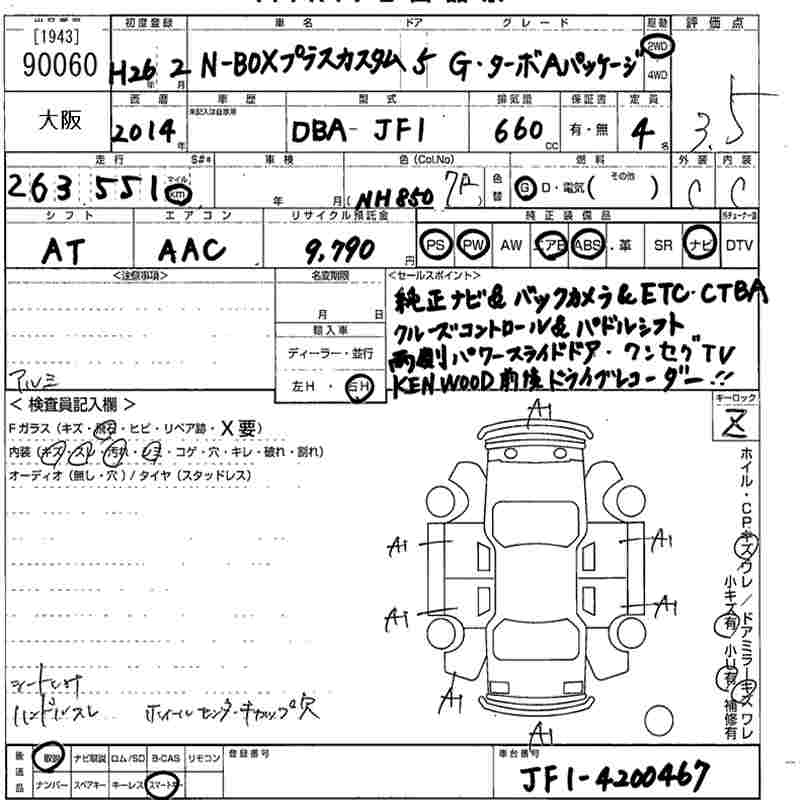 [1943]
90060
大阪
初度登録 車名 ドア グレード 駆動 評価点
H26年 2月 N-BOXプラスカスタム 5 G・ターボAパッケージ 2WD 4WD
3.5
西暦 車歴 型式 排気量 保証書 定員
未記入は自家用
2014年 DBA-JF1 660cc 有・無 4名
走行 S#* 車検 色(Col.No) 燃料 外装 内装
263,551 マイル km 年 月 NH850 色替 G D・電気( その他 ) C C
シフト エアコン リサイクル預託金 純正装備品
AT AAC 9,790円 PS PW AW エアB ABS 革 SR ナビ DTV
<注意事項> 名変期限 <セールスポイント>
月 日
輸入車
ディーラー・並行
左H・右H
純正ナビ&バックカメラ&ETC・CTBA
クルーズコントロール&パドルシフト
両側パワースライドドア・ワンセグTV
KENWOOD前後ドライブレコーダー!!
アルミ
<検査員記入欄>
Fガラス(キズ・飛石・ヒビ・リペア跡・X要)
内装(キズ・スレ・汚れ・シミ・コゲ・穴・キレ・破れ・割れ)
オーディオ(無し・穴)/タイヤ(スタッドレス)
キーロック
Z
A1
A1 A1
A1 A1
A1
A1
ホイル・CPキズワレ/ドアミラーキズワレ
小キズ有 小U有 補修有
ハンドルスレ ホイールセンターキャップ穴
後送品 取説 ナビ取説 ロム/SD B-CAS リモコン 登録番号 車台番号
ナンバー スペアキー キーレス スマートキー
JF1-4200467